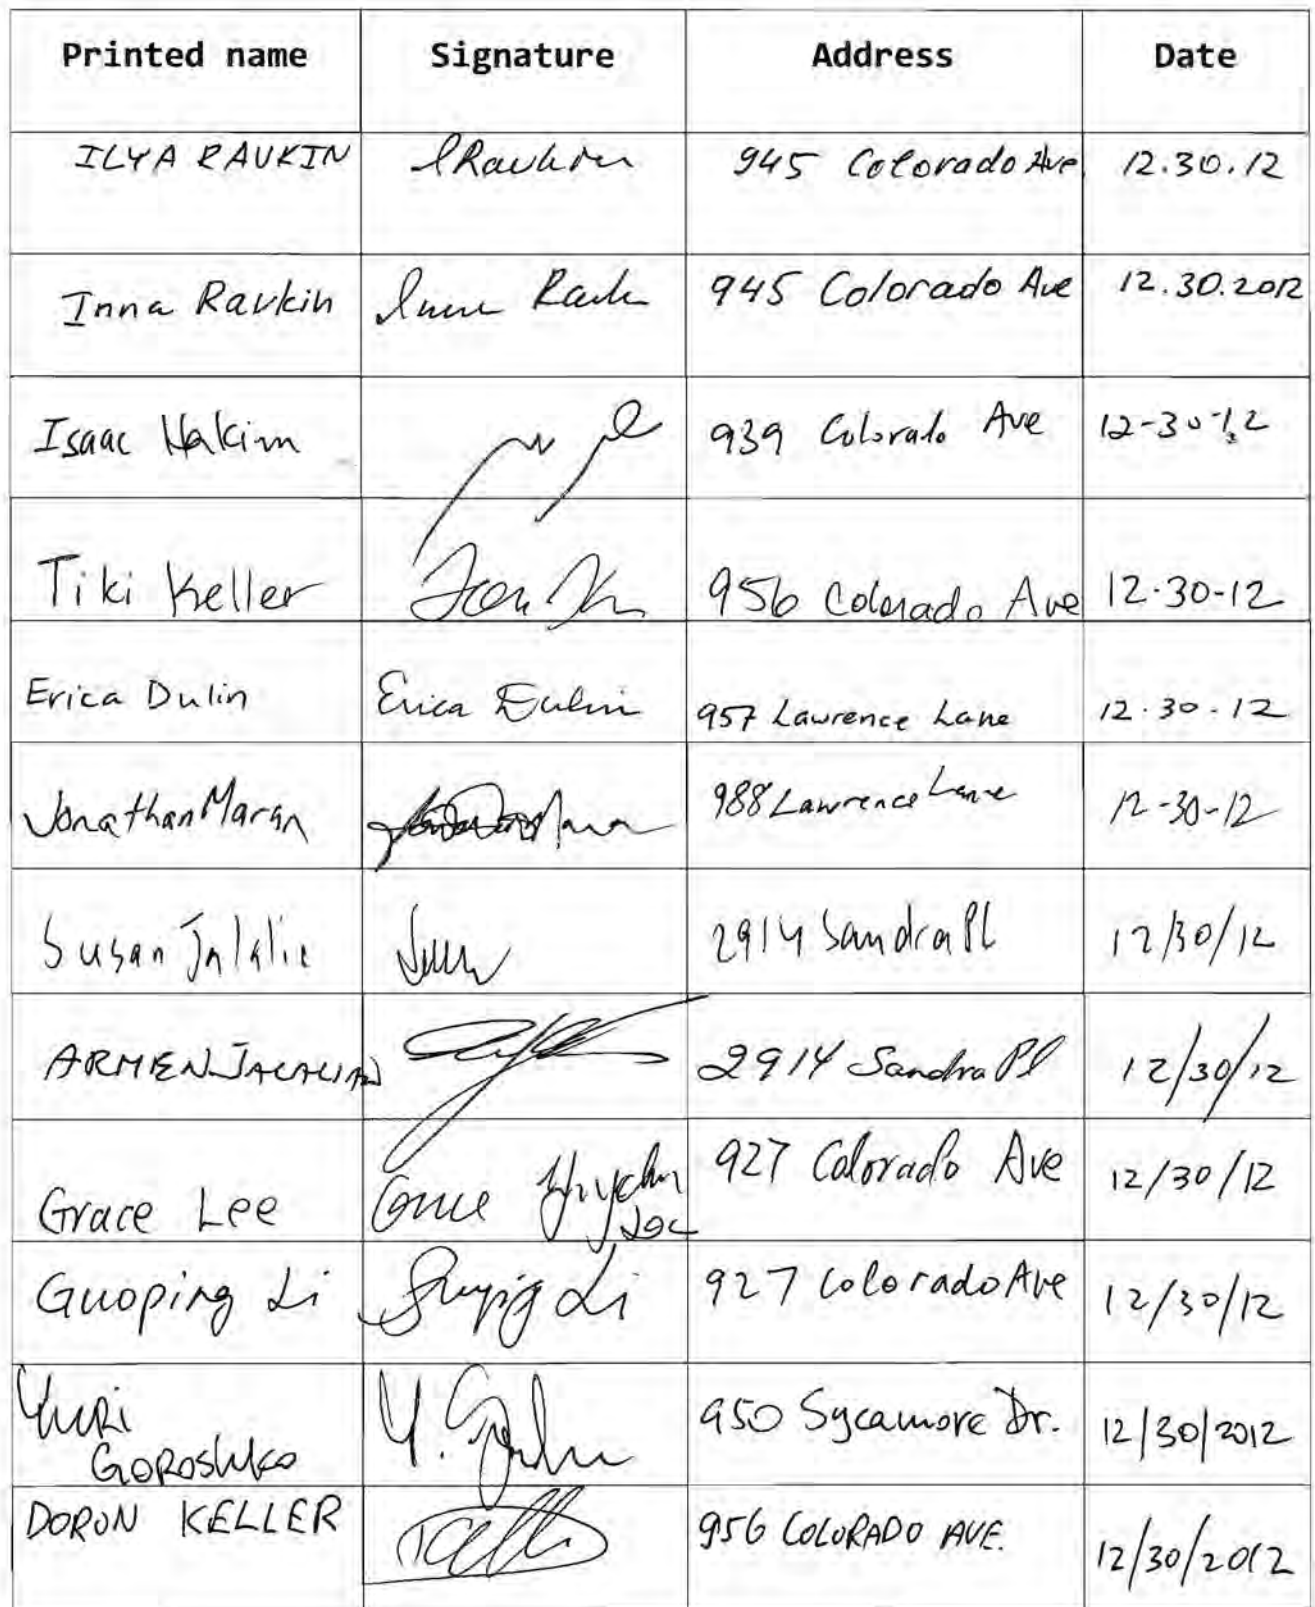 Printed name Signature Address Date
ILYA RAVKIN IRavkin 945 Colorado Ave 12.30.12
Inna Ravkin Inna 945 Colorado Ave 12.30.2012
Isaac Hakim 939 Colorado Ave 12-30-12
Tiki Keller 956 Colorado Ave 12-30-12
Erica Dulin Erica Dulin 957 Lawrence Lane 12.30.12
Jonathan Maran 988 Lawrence Lane 12-30-12
Susan 2914 Sandra Pl 12/30/12
ARMEN JALALIAN 2914 Sandra Pl 12/30/12
Grace Lee Grace 927 Colorado Ave 12/30/12
Lee
Guoping Li Guoping Li 927 Colorado Ave 12/30/12
Yuri Y. 950 Sycamore Dr. 12/30/2012
Goroshko
DORON KELLER 956 COLORADO AVE. 12/30/2012